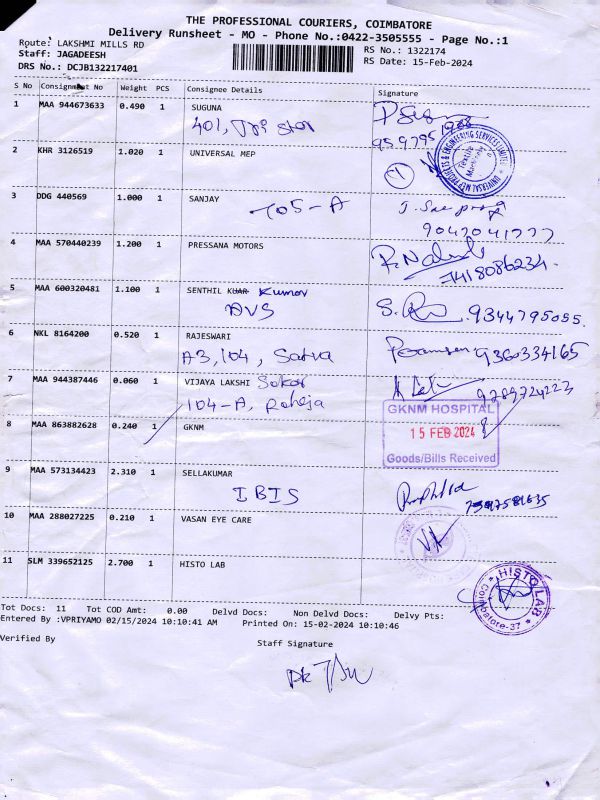 THE PROFESSIONAL COURIERS, COIMBATORE
Delivery Runsheet - MO - Phone No.:0422-3505555 - Page No.:1
Route: LAKSHMI MILLS RD
RS No.: 1322174
Staff: JAGADEESH
RS Date: 15-Feb-2024
DRS No.: DCJB132217401
S No Consignment No Weight PCS Consignee Details Signature
1 MAA 944673633 0.490 1 SUGUNA
401,
2 KHR 3126519 1.020 1 UNIVERSAL MEP
3 DDG 440569 1.000 1 SANJAY
705-A
9042041777
4 MAA 570440239 1.200 1 PRESSANA MOTORS
7418086234.
5 MAA 600320481 1.100 1 SENTHIL KUAR Kumar
AVS
9344795085.
6 NKL 8164200 0.520 1 RAJESWARI
A3,104, Satva
9360334165
7 MAA 944387446 0.060 1 VIJAYA LAKSHI
104-A, Raheja
9789724223
8 MAA 863882628 0.240 1 GKNM
GKNM HOSPITAL
15 FEB 2024
Goods/Bills Received
9 MAA 573134423 2.310 1 SELLAKUMAR
IBIS
10 MAA 288027225 0.210 1 VASAN EYE CARE
11 SLM 339652125 2.700 1 HISTO LAB
HISTO LAB
Coimbatore-37
Tot Docs: 11 Tot COD Amt: 0.00 Delvd Docs: Non Delvd Docs: Delvy Pts:
Entered By :VPRIYAMO 02/15/2024 10:10:41 AM Printed On: 15-02-2024 10:10:46
Verified By
Staff Signature